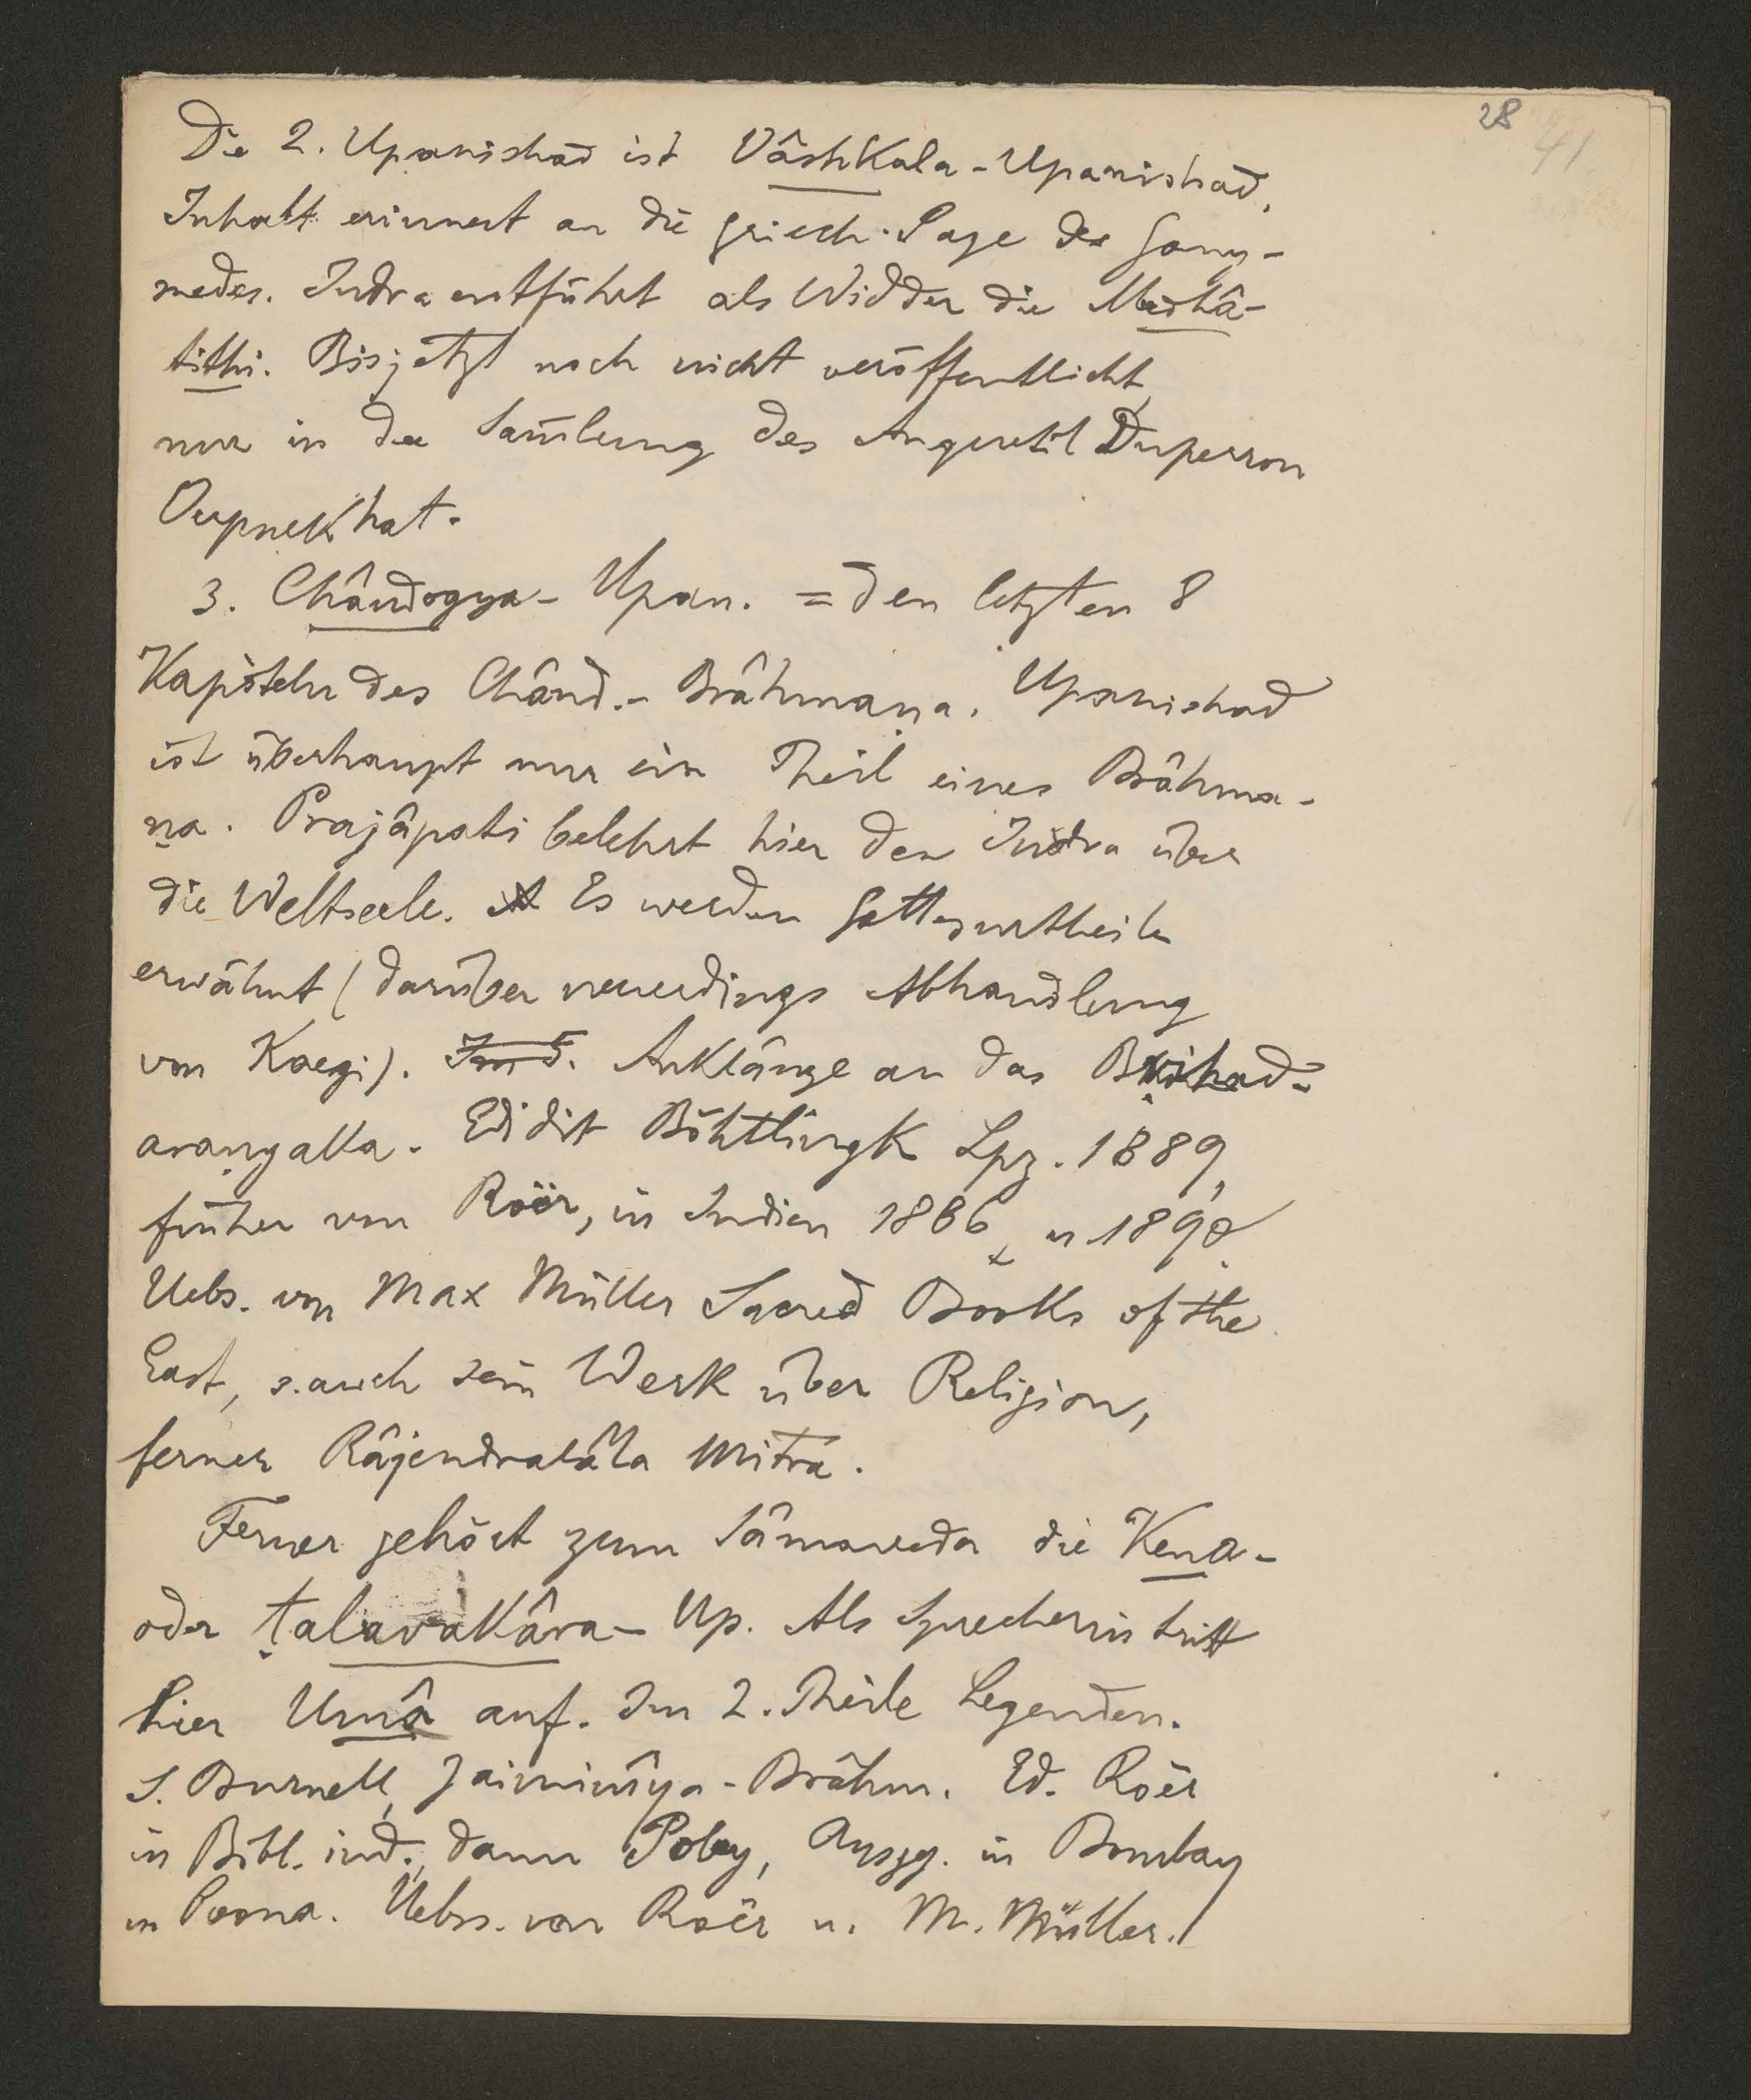 28 41
Die 2. Upanishad ist Vâshkala-Upanishad,
Inhalt erinnert an die griech. Sage des Gany-
medes. Indra entführt als Widder die Medhâ-
tithi. Bis jetzt noch nicht veröffentlicht,
nur in der Sam̄lung des Anquetil Duperron
Oupnekhat.
3. Chândogya-Upan. = den letzten 8
Kapiteln des Chând.-Brâhmaṇa. Upanishad
ist überhaupt nur ein Theil eines Brâhma-
ṇa. Prajâpati belehrt hier den Indra über
die Weltseele. Es werden Gottesurtheile
erwähnt (darüber neuerdings Abhandlung
von Kaegi). Ind. Anklänge an das Bṛihad-
araṇyaka. Edidit Böhtlingk Lpz. 1889,
früher von Röer, in Indien 1886 u 1890.
Uebs. von Max Müller Sacred Books of the
East, s. auch sein Werk über Religion,
ferner Râjendralâla Mitra.
Ferner gehört zum Sâmaveda die Kena-
oder ṭalavakâra-Up. Als Sprecherin tritt
hier Umâ auf. Im 2. Theile Legenden.
S. Burnell, Jaiminîya-Brâhm. Ed. Roër
in Bibl. ind., dann Poley, Ausgg. in Bombay
in Poona. Uebss. von Roër u. M. Müller.